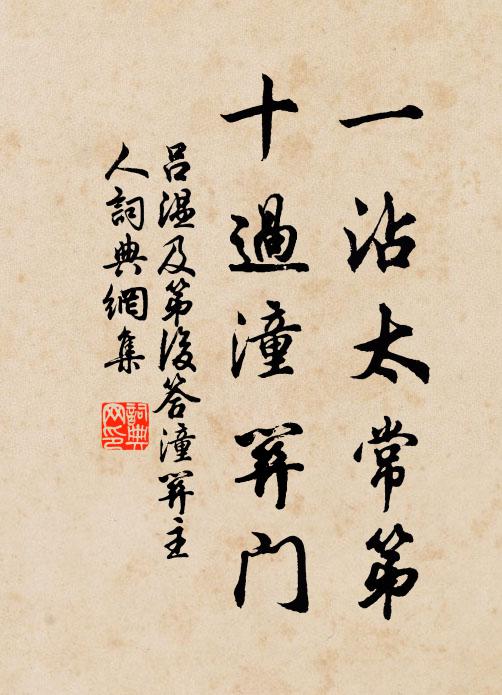 一沾太常第
十過潼關門
吕温及第後答潼關主
人詞典網集
詞典
网印